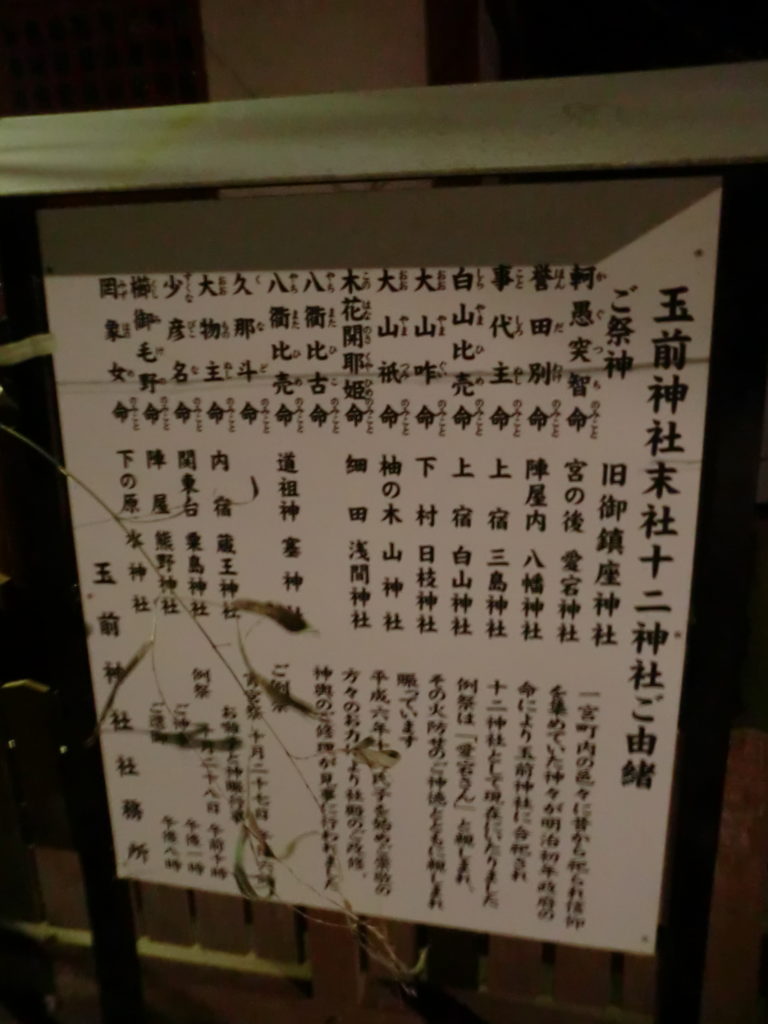 玉前神社末社十二神社ご由緒
ご祭神
旧御鎮座神社
軻愚突智命 宮の後 愛宕神社
誉田別命 陣屋内 八幡神社
事代主命 上宿 三島神社
白山比売命 上宿 白山神社
大山咋命 下村 日枝神社
大山祇命 柚の木 山神社
木花開耶姫命 細田 浅間神社
八衢比古命
八衢比売命 道祖神 塞神社
久那斗命
大物主命 内宿 蔵王神社
少彦名命 関東台 粟島神社
櫛御毛野命 陣屋 熊野神社
罔象女命 下の原 水神社
一宮町内の邑々に昔から祀られ信仰
を集めていた神々が明治初年政府の
命により玉前神社に合祀され
十二神社として現在にいたりました
例祭は「愛宕さん」と親しまれ、
その火防せのご神徳とともに親しまれ
賑っています
平成六年十 氏子を始めご崇敬の
方々のお力 により社殿のご改修、
神輿のご修理が見事に行われました
ご例祭
宵宮祭 十月二十七日 午後六時
お囃子と神賑行事
例祭 十月二十八日 午前十時
午後一時
午後八時
玉前神社社務所